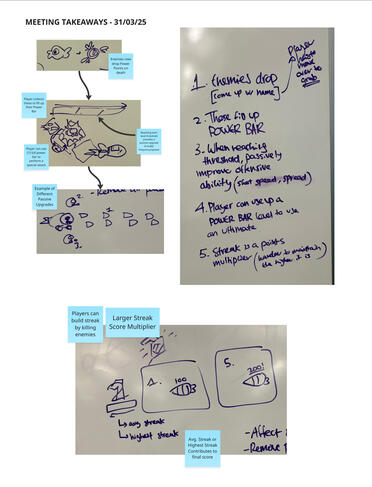 MEETING TAKEAWAYS - 31/03/25
Enemies now
drop Power
Points on
death
Player collects
these to fill up
their Power
Bar
Reaching each
Player can use
to perform a
special attack
Example of
Different
Passive
Upgrades
2.
1
3.
Player
must
move
over to
grab
1. Enemies drop
[come up w/ name]
2. These fill up
POWER BAR
3. When reaching
threshold, passively
improve offensive
ability (shot speed, spread)
4. Player can use up a
POWER BAR level to use
an ultimate
5. Streak is a points
multiplier (harder to maintain
the higher it is)
Players can
build streak
by killing
enemies
Larger Streak
Score Multiplier
4.
100
5.
200!
↳ avg streak
↳ highest streak
-Affect
-Remove
Avg. Streak or
Highest Streak
Contributes to
final score